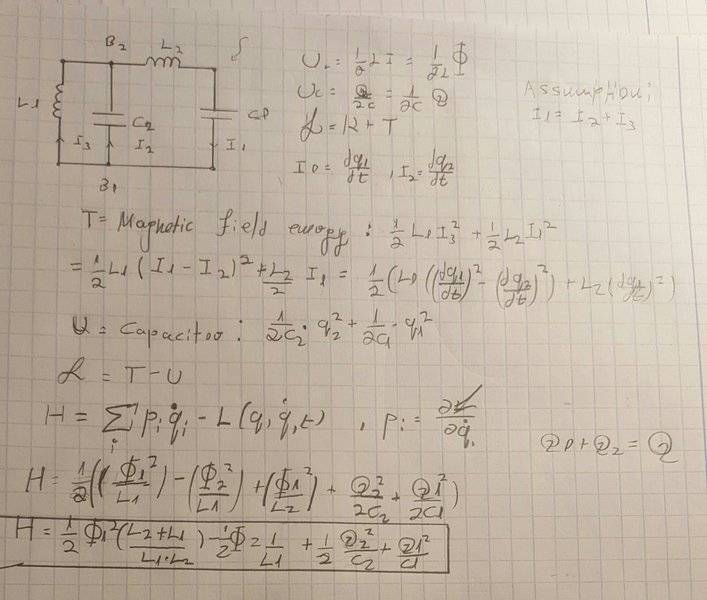 B2 L2
L1 C2 C1
I3 I2 I1
B1
U_L = 1/2 L I = 1/2L Φ
U_C = Q/2C = 1/2C Q
ℒ = K + T
I1 = dq1/dt , I2 = dq2/dt
Assumption:
I1 = I2 + I3
T = Magnetic field energy : 1/2 L1 I3² + 1/2 L2 I1²
= 1/2 L1 (I1 - I2)² + L2/2 I1 = 1/2 (L1 ((dq1/dt)² - (dq2/dt)²) + L2 (dq1/dt)²)
U = Capacitor : 1/2C2 · q2² + 1/2C1 · q1²
ℒ = T - U
H = Σi pi q̇i - L(q, q̇, t) , pi = ∂ℒ/∂q̇i
Q1 + Q2 = Q
H = 1/2 ((Φ1²/L1) - (Φ2²/L1) + (Φ1²/L2) + Q2²/2C2 + Q1²/2C1)
H = 1/2 Φ1² (L2 + L1/L1·L2) - 1/2 Φ2 1/L1 + 1/2 Q2²/C2 + Q1²/C1